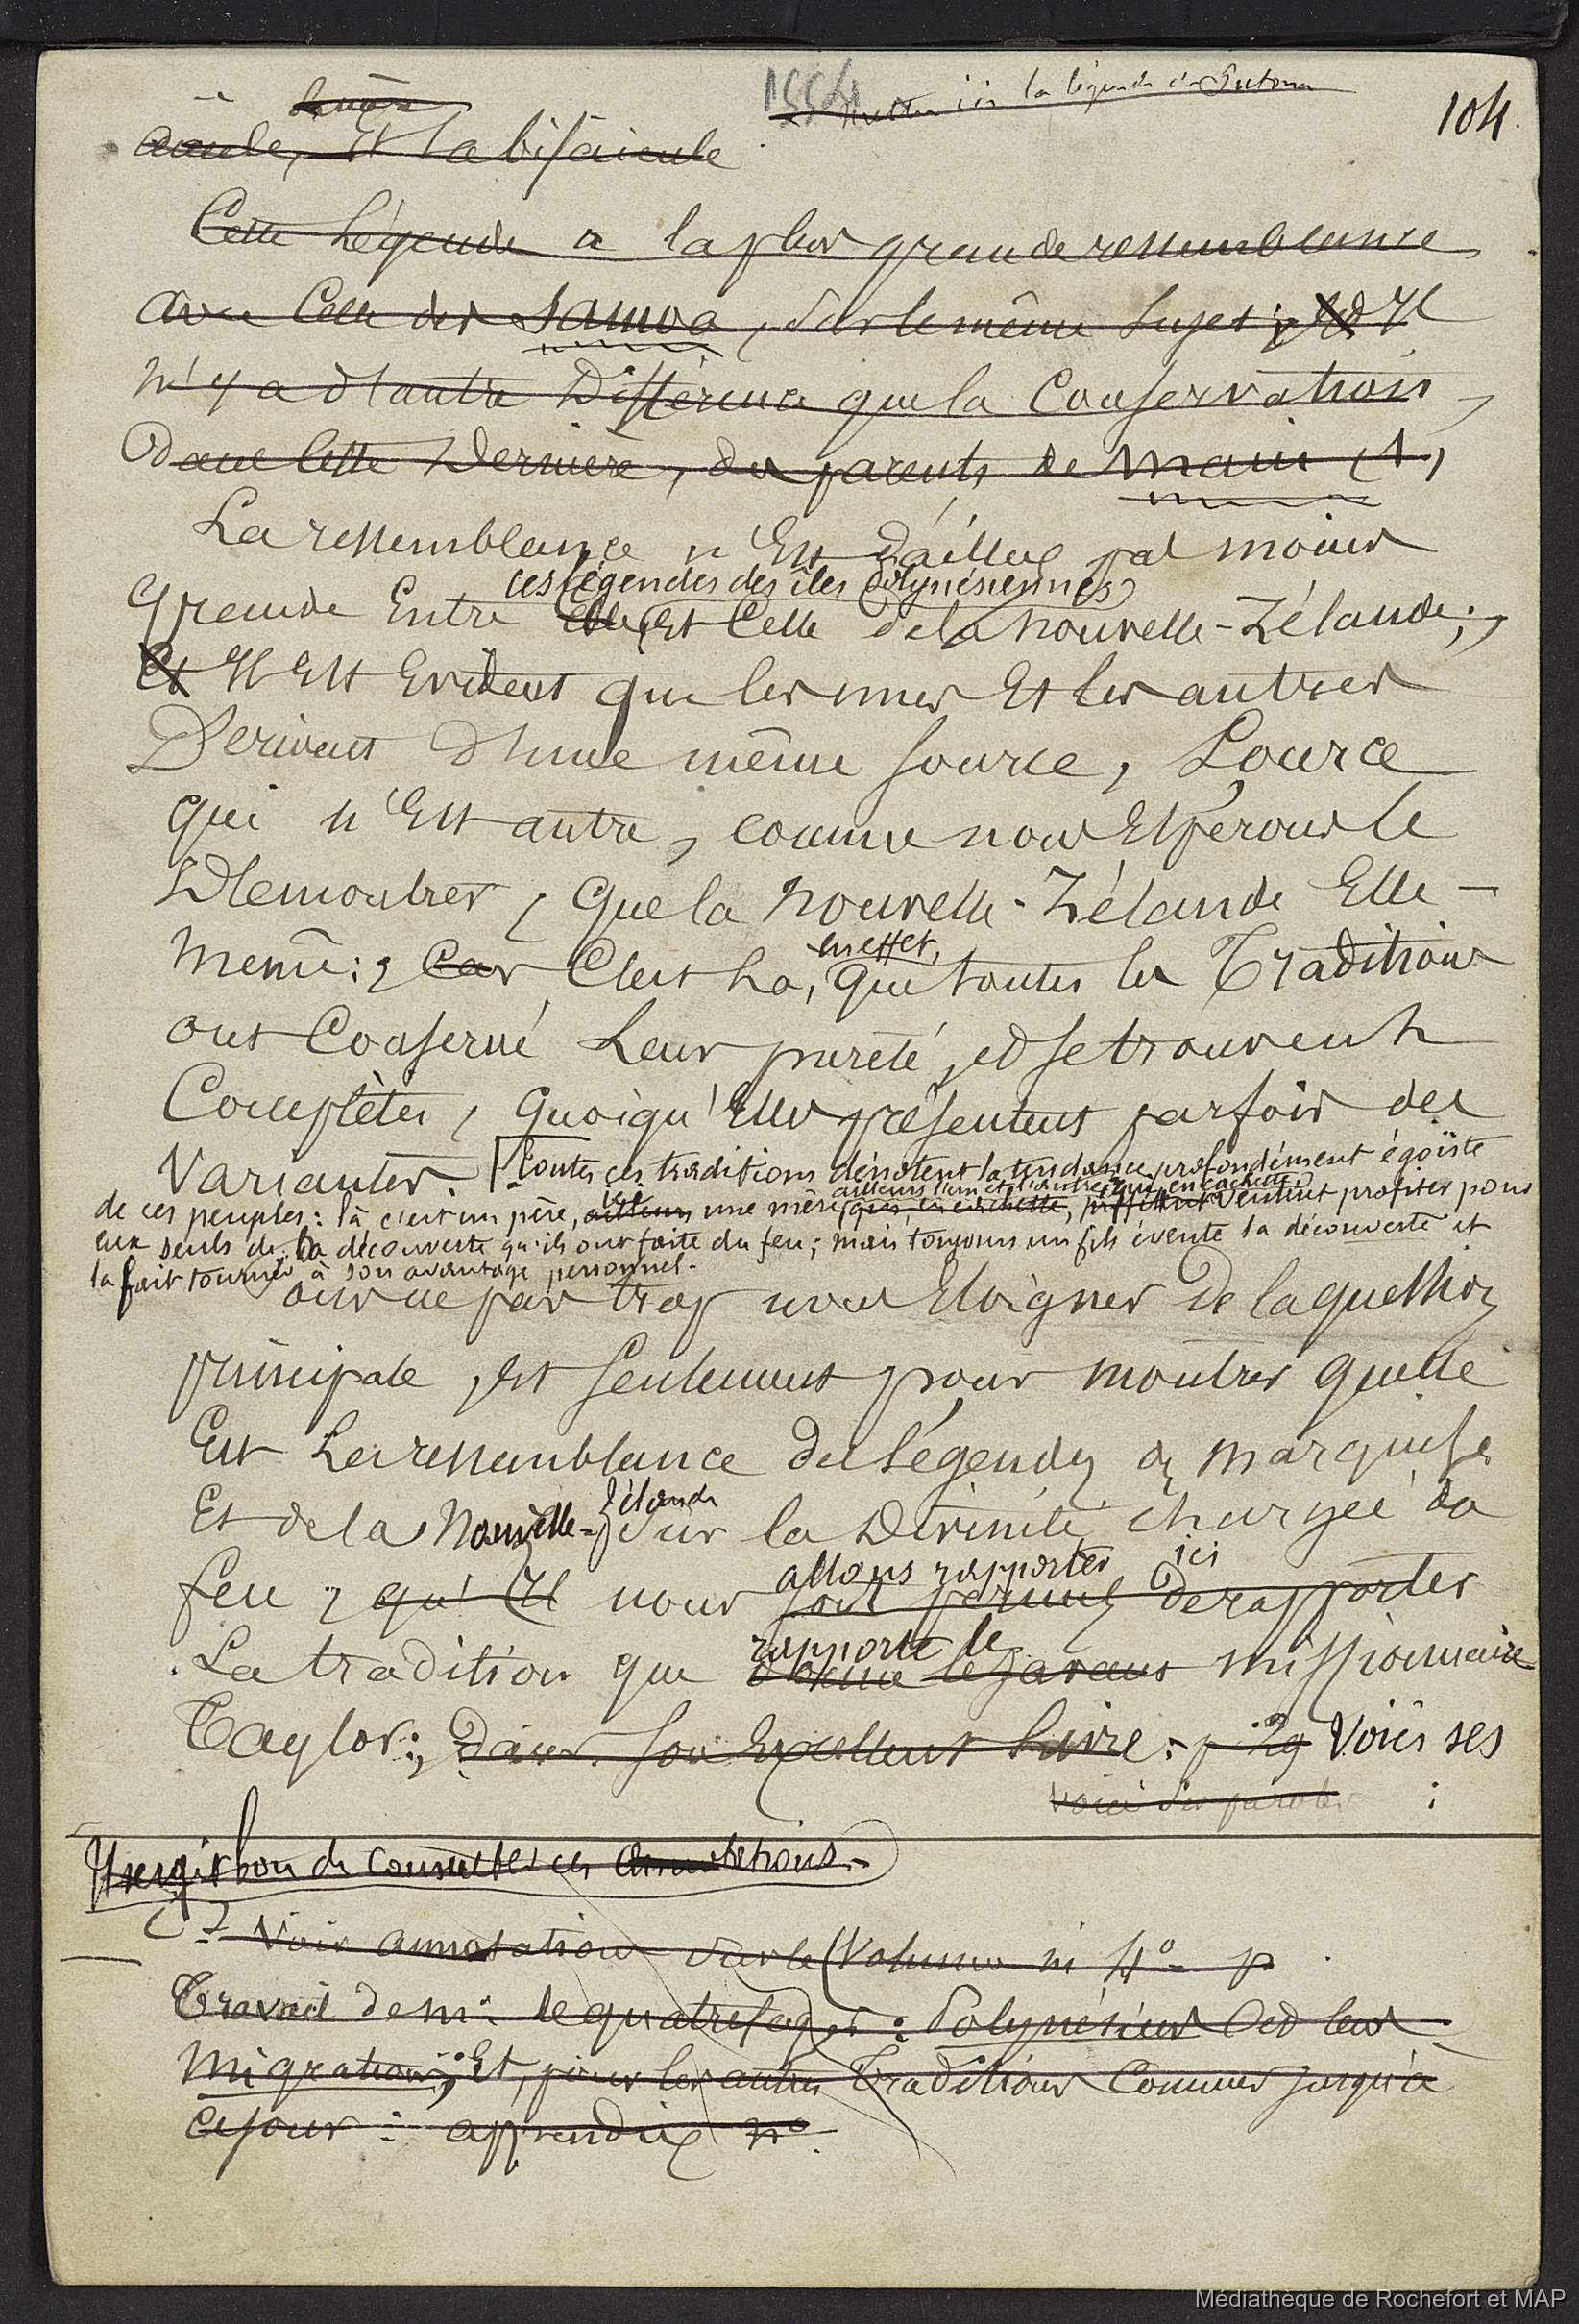 1554
Mettre ici la légende de
104.
aieule, Et la bisaieule
Cette légende a la plus grande ressemblance
avec Celle des Samoa, sur le même sujet; Il
n'y a d'autre Différence que la Conservation,
Dans cette Dernière, des parents de Maui (1)
La ressemblance n'Est d'ailleurs pas moins
ces légendes des îles Polynésiennes
grande Entre Elle Et Celle de la Nouvelle-Zélande;
Et Il Est Evident que les unes Et les autres
Derivent d'une même source, Source
qui n'Est autre, comme nous Espérons le
Démontrer, que la Nouvelle-Zélande Elle-
en effet,
même: car C'est là, que toutes les Traditions
ont Conservé Leur pureté, et se trouvent
Complètes, quoiqu'Elles présentent parfois des
Variantes. Toutes ces traditions dénotent la tendance profondément égoïste
ailleurs l'un et l'autre qui, en cachette
de ces peuples: là c'est un père, ailleurs une mère qui, en cachette, veulent profiter pour
eux seuls de la découverte qu'ils ont faite du feu; mais toujours un fils évente la découverte et
la fait tourner à son avantage personnel.
our ne pas trop nous Eloigner De la question
principale, Et seulement pour montrer quelle
Est La ressemblance des légendes des Marquises
Zélande
Et de la Nouvelle- sur la Divinité chargée du
allons rapporter ici
feu, qu'Il nous soit permis De rapporter
rapporte le
La tradition que donne le savant missionnaire
Taylor; Dans son Excellent Livre: Voici ses
voici ses paroles :
Il s'agit bien de consulter ces annotations.
Voir annotation sur le Volume in 4° p
Travail de Mr de quatrefages: Polynésiens Et leurs
Migrations; Et, pour les autres Traditions Connues jusqu'à
ce jour: appendix n°
Médiathèque de Rochefort et MAP